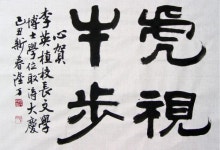 虎視
牛步
心賀
李英植校長文學
博士學位取得大慶
己丑新春